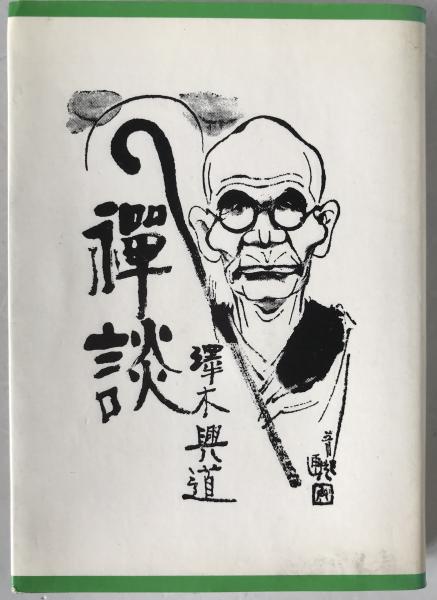 禪談
澤木興道